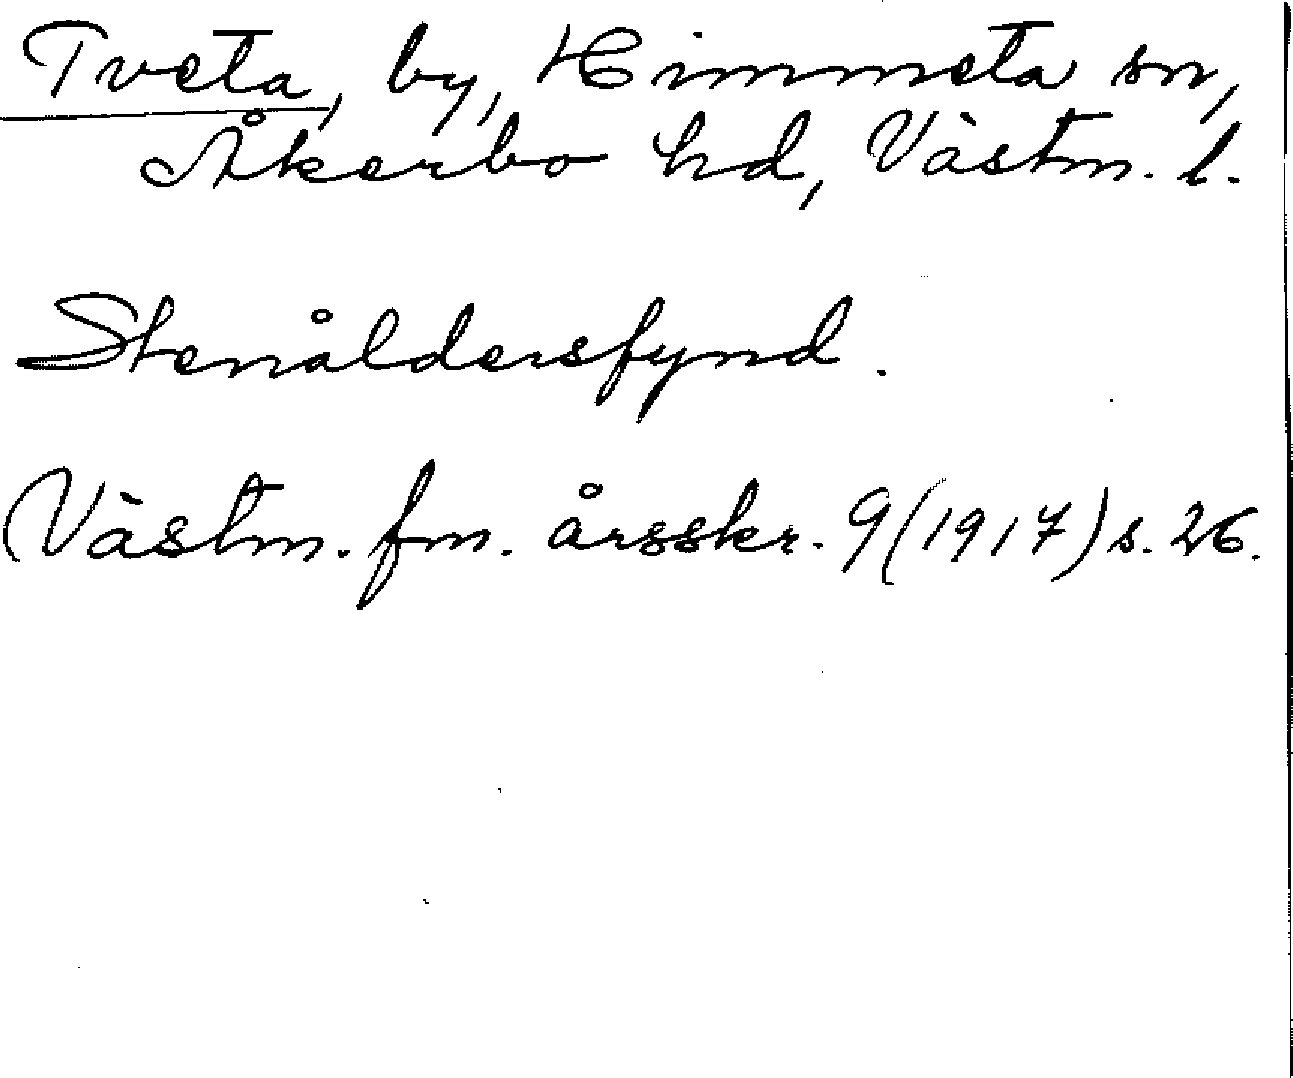 Tveta, by, Himmeta sn,
Åkerbo hd, Västm. l.
Stenåldersfynd.
Västm. fm. årsskr. 9 (1917) s. 26.